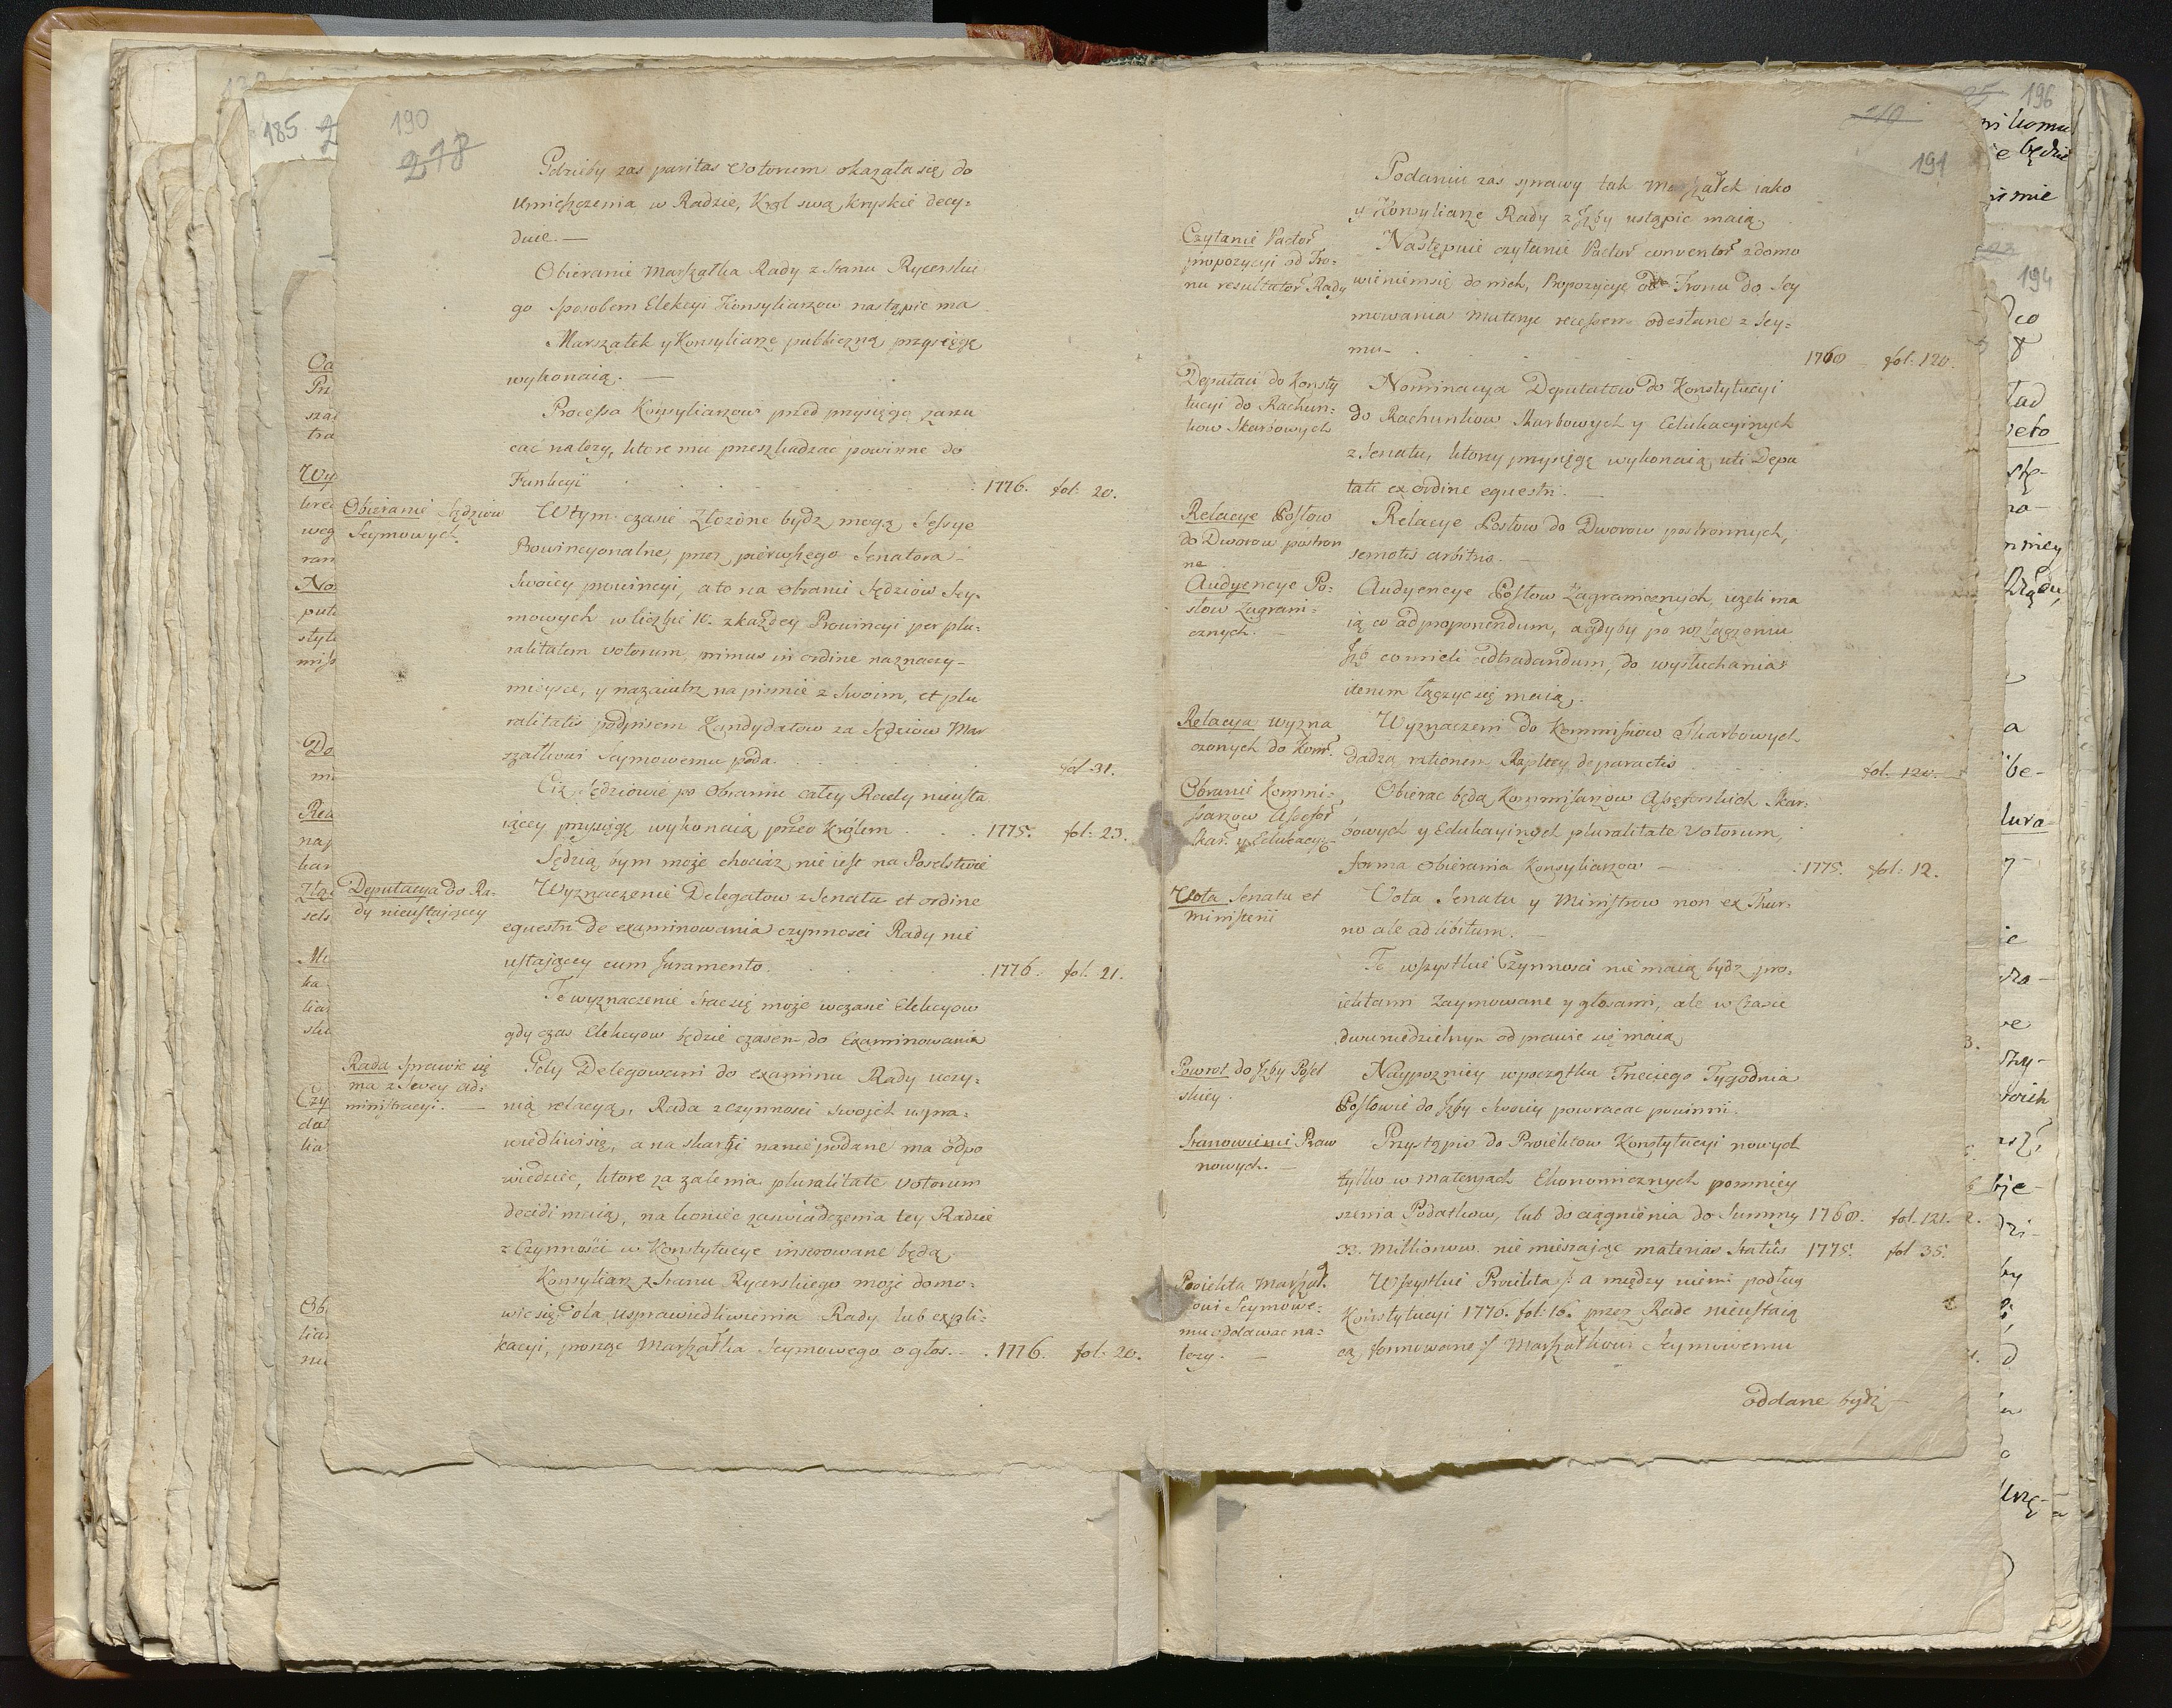 190
218
Gdzieby zas paritas Votorum okazała się do
umieszczenia w Radzie, Krol swą kryskie decy=
duie. —
Obieranie Marszałka Rady z Stanu Rycerskie
go sposobem Elekcyi Konsyliarzow nastąpic ma
Marszałek y Konsyliarze publiczną przysięgę
wykonaią. —
Processa Konsyliarzow przed przysięgą zarzu
cać nalezy, ktore mu przeszkadzac powinne do
Funkcyi . 1776. fol: 20.
Obieranie Sędziow
Seymowych.
W tym czasie złozone bydz mogą Sessye
Prowincyonalne, przez pierwszego Senatora
Swoiey prowincyi, a to na obranie Sędziow Sey=
mowych w liczbie 10. z kazdey Prowincyi per plu=
ralitatem votorum, primus in ordine naznaczy
mieysce, y nazaiutrz na pismie z Swoim, et plu
ralitatis podpisem Kandydatow za Sędziow Mar
szałkowi Seymowemu poda. fol 31.
Ciz Sędziowie po obraniu całey Rady nieusta
iącey przysięgę wykonaią przed Krolem . . . 1775. fol: 23.
Sędzią bym moze chociaz nie iest na Poselstwie
Deputacya do Ra=
dy nieustaiącey
Wyznaczenie Delegatow z Senatu et ordine
equestri de examinowania czynnosci Rady nie
ustaiącey cum Juramento. . 1776. fol: 21.
Te wyznaczenie stac się moze w czasie Elekcyow
gdy czas Elekcyow będzie czasem do Examinowania
Rada Sprawic się
ma z Swey ad=
ministracyi. —
Gdy Delegowani do examinu Rady uczy=
nią relacyą, Rada z czynnosci Swoich uspra=
wiedliwi się, a na skargi na nie podane ma odpo
wiedziec, ktore zazalenia pluralitate votorum
decidi maią, na koniec zaswiadczenia tey Radzie
z Czynności w Konstytucye inserowane będą.
Konsyliarz z Stanu Rycerskiego moze domo=
wic się dla usprawiedliwienia Rady lub expli=
kacyi, prosząc Marszałka Seymowego o głos. . 1776. fol: 20.
210
191
Podaniu zas sprawy tak Marszałek iako
y Konsyliarze Rady z Izby ustąpic maią
Czytanie Pactor
propozycyi od Tro=
nu resultator Rady
Następuie czytanie Pactor conventor z domo
wieniem się do nich, Propozycye od Tronu do Sey
mowania Materye recessem odesłane z Sey=
mu . 1768 fol: 120.
Deputaci do Konsty
tucyi do Rachun=
kow Skarbowych
Nominacya Deputatow do Konstytucyi
do Rachunkow Skarbowych y Edukacyinych
z Senatu, ktorzy przysięgę wykonaią uti Depu
tati ex ordine equestri. —
Relacye Posłow
do Dworow postron
ne
Relacye Posłow do Dworow postronnych,
semotis arbitris. —
Audyencye Po=
słow Zagrani=
cznych. —
Audyencye Posłow Zagranicznych, iezeli ma
ią co ad proponendum, a gdyby po rozłączeniu
Izb co mieli ad tradandum, do wysłuchania
iterum łączyc się maią.
Relacya wyzna
czonych do Kom.
Wyznaczeni do Kommissiow Skarbowych
dadzą rationem Rzpltey de peractis fol. 120.
Obranie Kommi=
ssarzow Assessor
Skar. y Edukacyi
Obierac będą Kommissarzow Assessorskich Skar=
bowych y Edukayinych pluralitate Votorum,
forma Obierania Konsyliarzow . 1775. fol: 12.
Vota Senatu et
Ministerii
Vota Senatu y Ministrow non ex Thur=
no ale ad libitum. —
Te wszystkie Czynnosci nie maią bydz pro=
iektami Zaymowane y głosami, ale w Czasie
dwuniedzielnym odprawic się maią
Powrot do Izby Posel
skiey.
Naypozniey w początku Trzeciego Tygodnia
Posłowie do Izby Swoiey powracac powinni.
Stanowienie Praw
nowych. —
Przystąpic do Proiektow Konstytucyi nowych
tylko w materyach Ekonomicznych pomniey
szenia Podatkow, lub do ciągnienia do Summy 1768. fol. 121.
33. Millionow. nie mieszaiąc materias Statûs 1775. fol 35.
Proiekta Marszał
kowi Seymowe=
mu oddawac na=
lezy. —
Wszystkie Proiekta /: a między niemi podług
Konstytucyi 1776. fol: 16. przez Rade nieustaią
cą formowane :/ Marszałkowi Seymowemu
oddane bydz
185
196
194